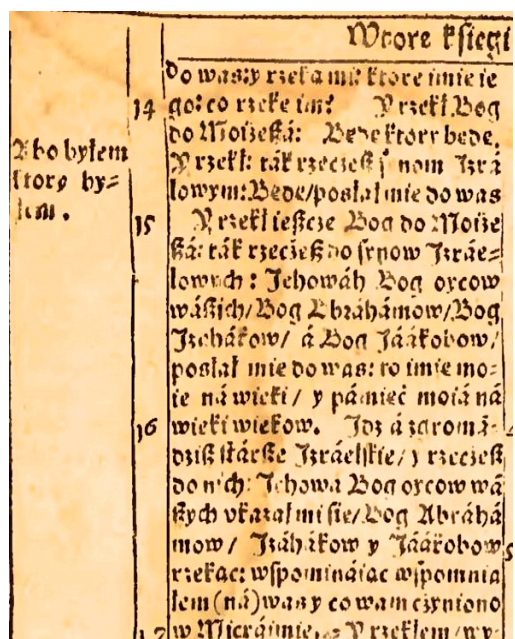 Wtore księgi
do was: y rzeką mi: ktore imie ie
go: co rzekę im?
14 Y rzekł Bog
do Moiżeßá: Będę ktory będę.
Abo byłem
ktory by=
łem.
Y rzekł: ták rzecżeß synom Izrá
lowym: Będę/ posłał mie do was
15 Y rzekł ieszcże Bog do Moiże
ßá: ták rzecżeß do synow Izráe=
lowych: Jehowáh Bog oycow
wáßych/ Bog Abráhámow/ Bog
Izchákow/ á Bog Jáákobow/
posłał mie do was: to imie mo=
ie ná wieki/ y pámięć moiá ná
16 wieki wiekow. Idz á zgromá=
dziß stárße Izráelskie/ y rzecżeß
do nich: Jehowa Bog oycow wá
ßych vkazał mi sie/ Bog Abráhá
mow/ Izáhákow y Jáákobow
rzekąc: wspomináiąc wspomnia
łem (ná) was y co wam cżyniono
17 w Micráimie. Y rzekłem/ wy=